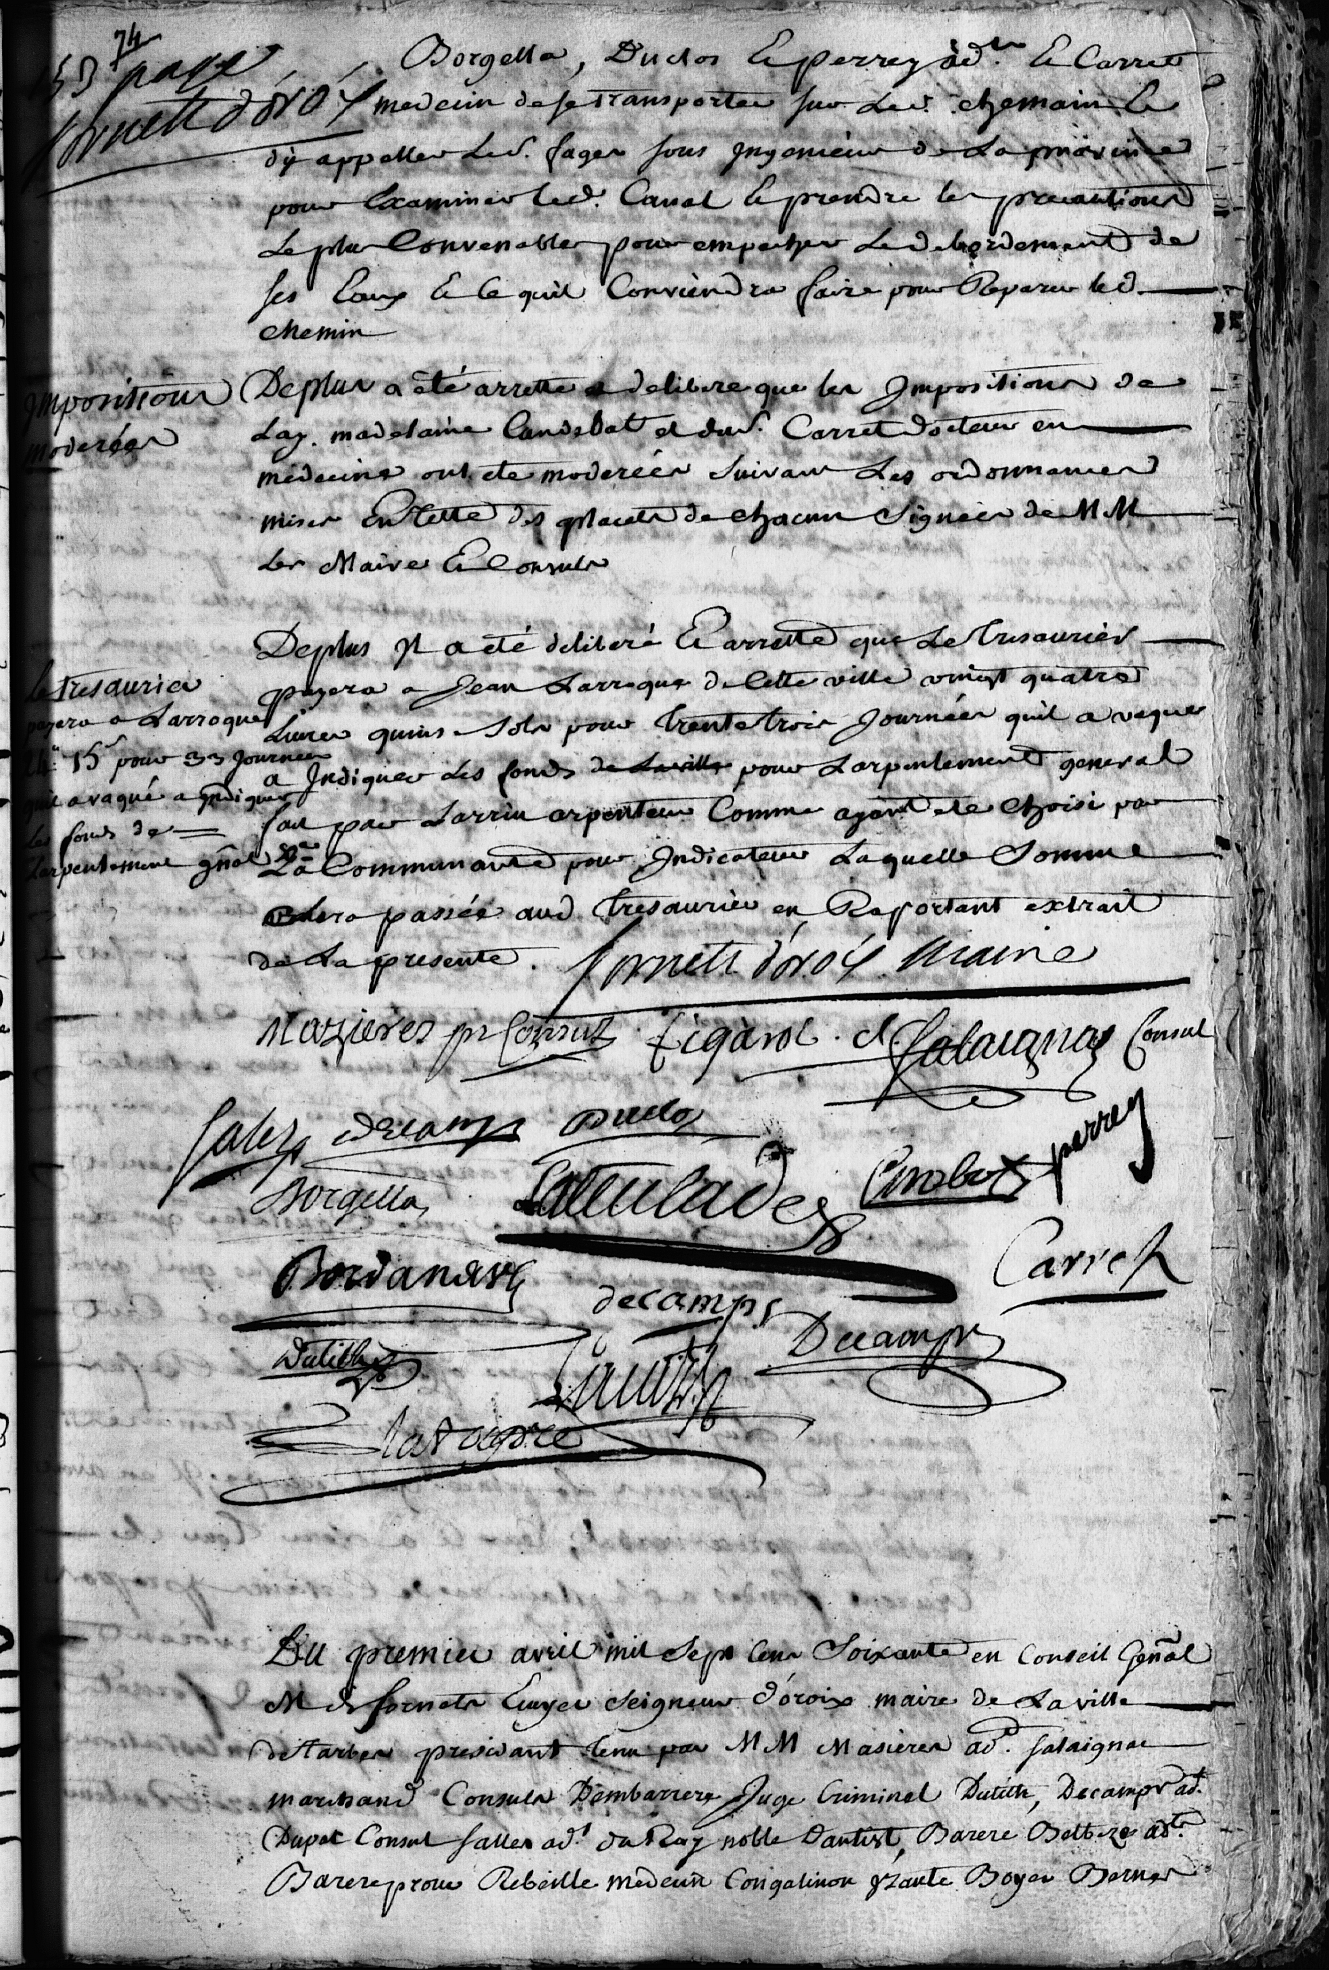 74
153 page
fornetz d'oroy
Borgella, Duclos & perrey ad.ts & Carret
medecin de se transporter sur led. chemain &
dy appeller led. sager sous Ingenieur de La province
pour Examiner led. Canal & prendre les precautions
Le plus Convenables pour empecher Le debordement de
ses Eaux & Ce quil Conviendra faire pour Reparer led.
chemin
Impositions
moderées
De plus a été arretté & deliberé que les Impositions de
Lay. madelaine Candebat et du s.r Carret docteur en
medecine ont été moderées suivant Les ordonnances
mises En tette des placets de chacun Signées de MM
Les Maire & Consuls
Le tresaurier
payera a Larroque
15 s pour 33 Journées
quil a vaqué a Indiquer
les fonds de
Larpentement gñal
De plus Il a été deliberé & arretté que Le tresaurier
payera a Jean Larroque de Cette ville vingt quatre
Livres quins sols pour trente trois Journées quil a vaqué
a Indiquer Les fonds de La ville pour Larpentement general
fait par Larriu arpenteur Comme ayant été choisi par
La Communauté pour Indicateur Laquelle Somme
sera passée aud tresaurier en Raportant extrait
de La presente.
fornetz d'oroy maire
Mazieres pr Consul figarol. c. salaignac Consul
sales decamps Duclos
perrey
Borgella Castelnau
Carret
Bordanave
decamps
Decamps
Dutilh
Larroque
Du premier avril mil sept Cens Soixante en Conseil Gñal
M de fornets Ecuyer Seigneur d'oroix maire de La ville
de tarbes presidant tenu par MM Masieres ad.t salaignac
marchand Consuls Dembarrere Juge Criminel Dutilh, Decamps ad.t
Dupac Consul salles ad.t du Ray noble Dantist, Barere Belbeze ad.ts
Barere proeur Rebeille medecin Congalinon yzante Boyer Bernes